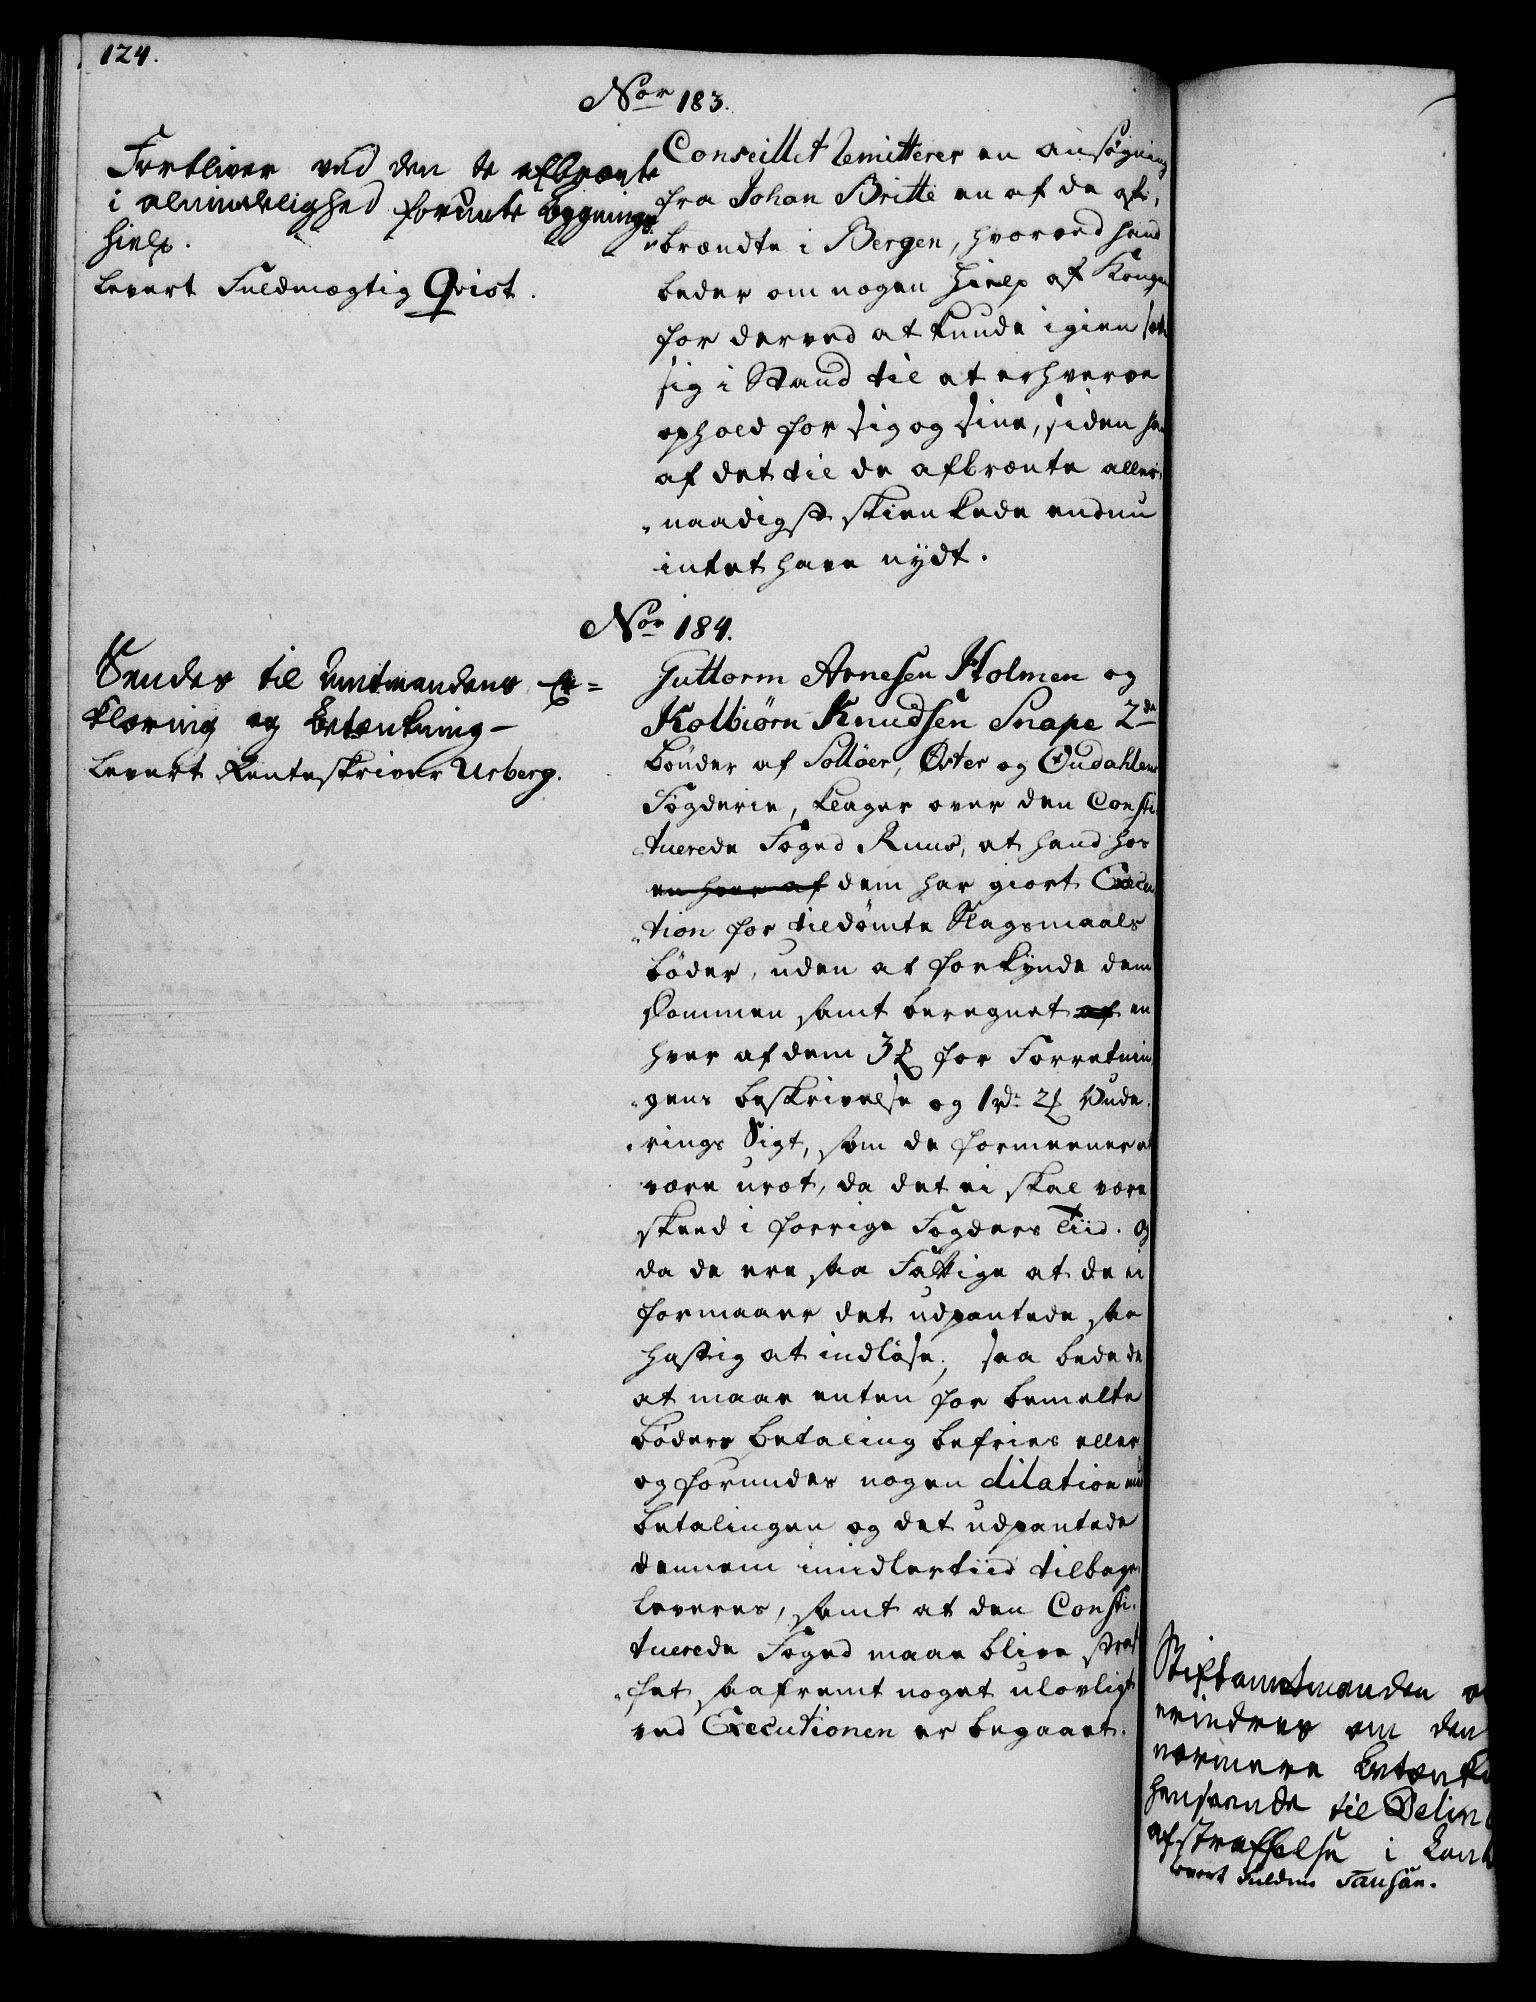 124.
Nor 183.
Forbliver ved den de afbrænte
i almindelighed forundte bygnings
hielp.
Levert Fuldmægtig Qvist.
Conseillet remitterer en ansøgning
fra Johan Britte en af de af-
brændte i Bergen, hvorved hand
beder om nogen Hielp af Kongen
for derved at kunde igien sætte
sig i Stand til at erhverve
ophold for sig og sine, siden han
af det til de afbrænte aller-
naadigst skienkede endnu
intet have nydt.
Nor 184.
Sendes til Amtmandens Er=
klæring og Betænkning -
Levert Renteskriver Urberg.
Guttorm Arnesen Holmen og
Kolbiørn Knudsen Snape 2de
bønder af Solløer, Øster og Oudahlens
Fogderie, klager over den Consti-
tuerede Foged Ruus, at hand hos
en hver af dem har giort Execu-
tion for tildømte Slagsmaals
bøder, uden at forkynde dem
Dommen samt beregnet af en
hver af dem 3 for Forretnin-
gens beskrivelse og 1 rd. 2 Vude-
rings Sigt, som de formeener at
være uræt, da det ei skal være
skeed i forrige Fogders Tiid. Og
da de ere saa Fattige at de ei
formaaer det udpantede saa
hastig at indløse, saa bede de
at maae enten for bemelte
bøders betaling befries eller
og forundes nogen dilation med
betalingen og det udpantede
dennem imidlertiid tilbage-
leveres, samt at den Consti-
tuerede Foged maae blive straf-
fet, saafremt noget ulovligt
ved Executionen er begaaet.
Stiftamtmanden
erindres om den
nærmere Betænk
henseende til Delin
afstraffelse i
Levert Fuldm. Fausän.